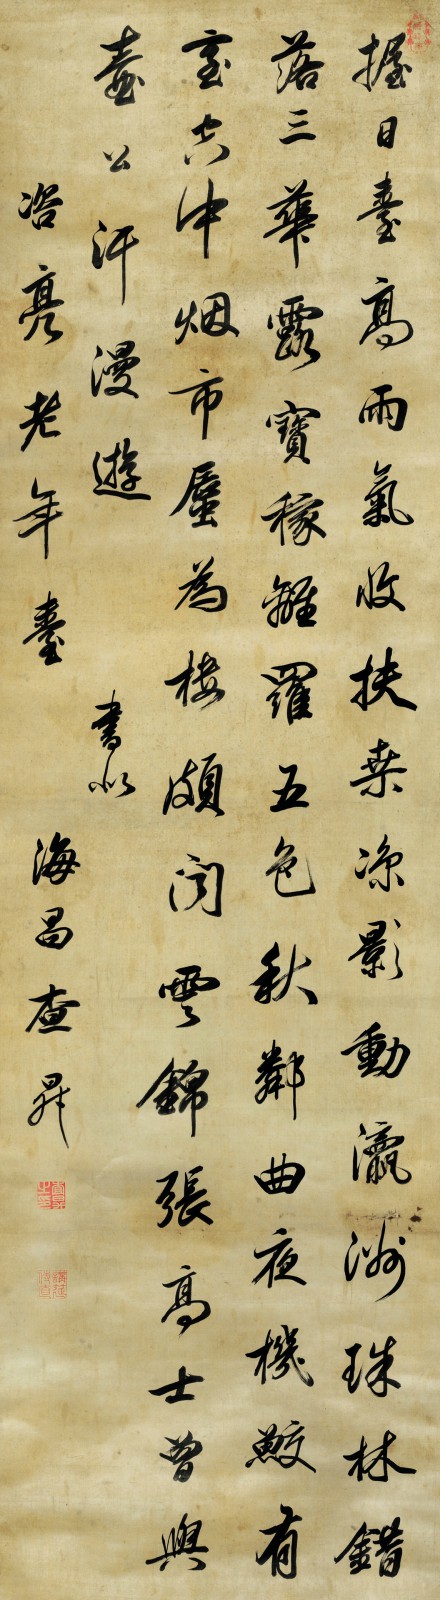 握日臺高雨氣收扶桒涼影動瀛洲珠林錯
落三華露寶稼離羅五色秋鄰曲夜機鮫有
室空中烟市蜃為樓頗聞雲錦張高士曾與
壺公汗漫遊 書似
亮老年臺 海昌查昇
查昇之印